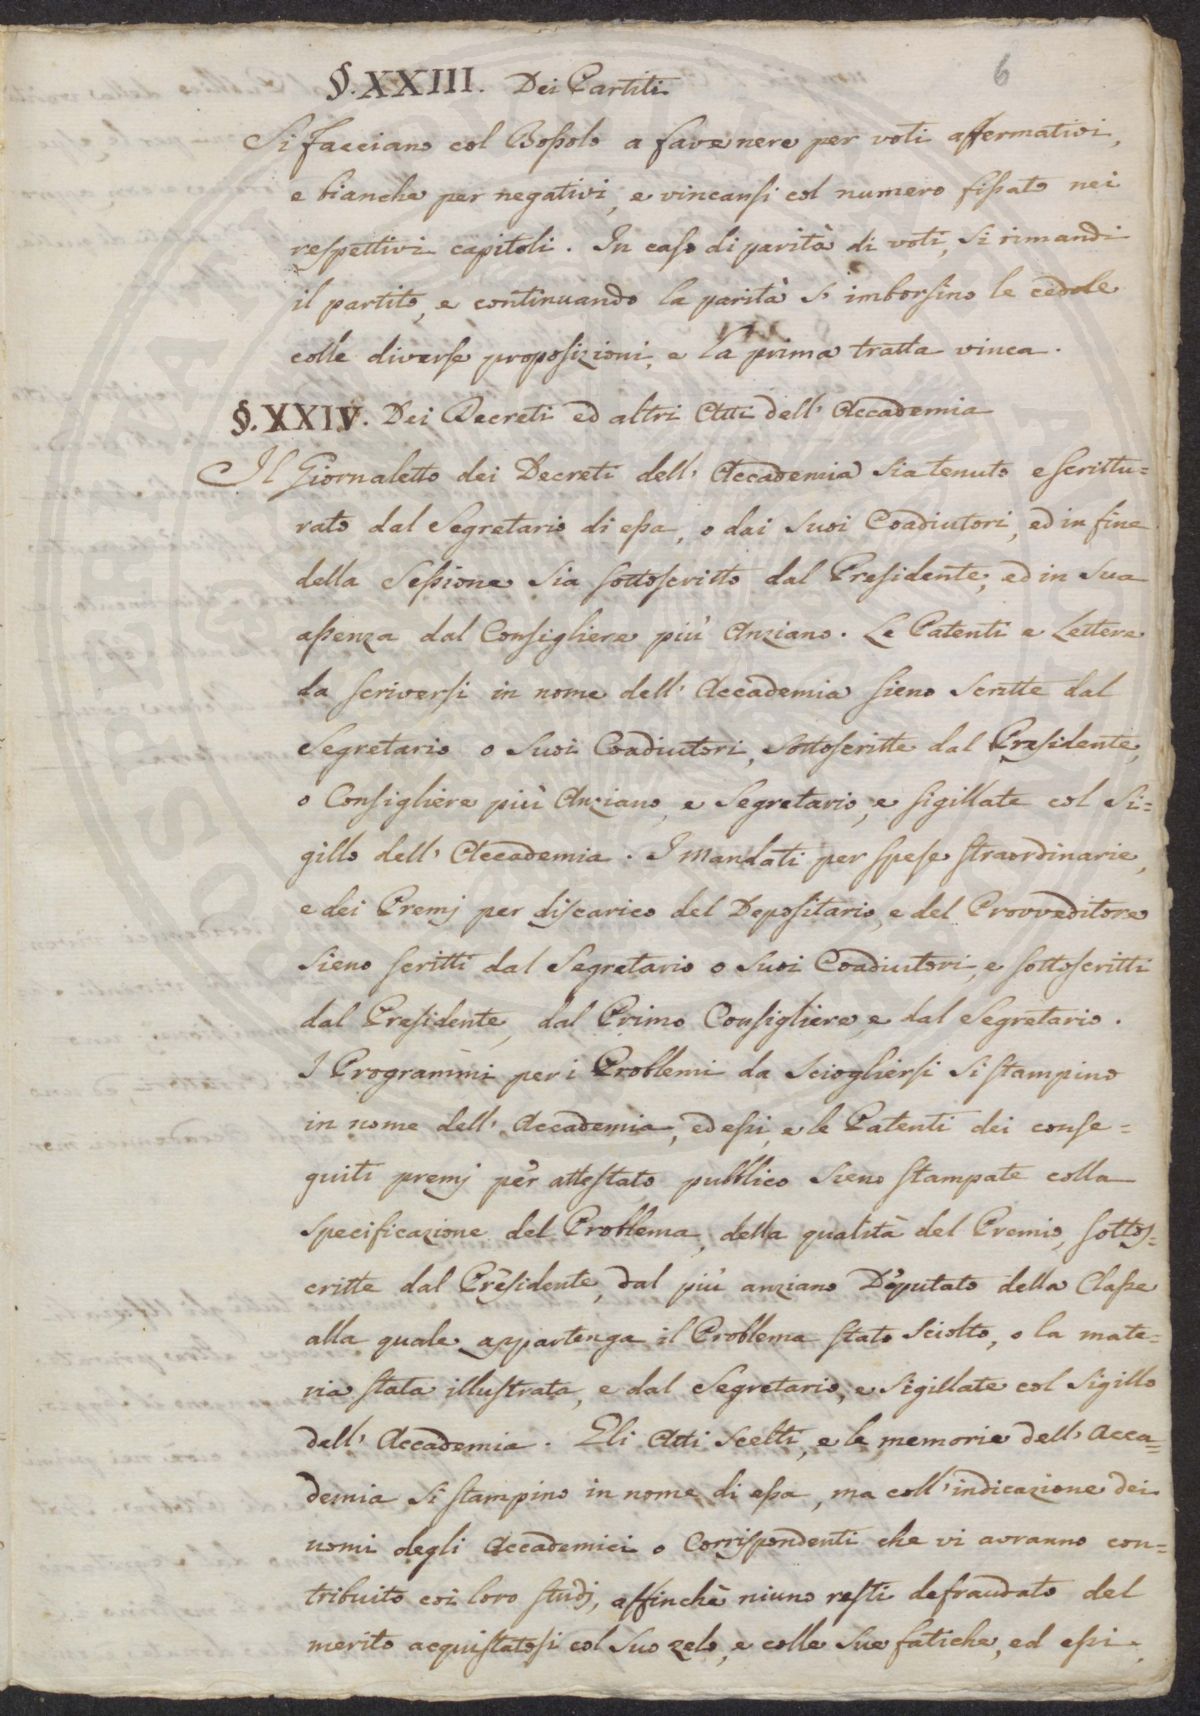 6
§. XXIII. Dei Partiti
Si facciano col Bossolo a fave nere per voti affermativi,
e bianche per negativi, e vincansi col numero fissato nei
respettivi capitoli. In caso di parità di voti, si rimandi
il partito, e continuando la parità s' imborsino le cedole
colle diverse proposizioni, e la prima tratta vinca.
§. XXIV. Dei Decreti ed altri Atti dell' Accademia
Il Giornaletto dei Decreti dell' Accademia sia tenuto e scrittu=
rato dal Segretario di essa, o dai suoi Coadiutori, ed in fine
della Sessione sia sottoscritto dal Presidente, ed in sua
assenza dal Consigliere più Anziano. Le Patenti e Lettere
da scriversi in nome dell' Accademia sieno scritte dal
Segretario o suoi Coadiutori, sottoscritte dal Presidente,
o Consigliere più Anziano, e Segretario, e sigillate col Si=
gillo dell' Accademia. I Mandati per spese straordinarie,
e dei Premj per discarico del Depositario, e del Provveditore
sieno scritti dal Segretario o suoi Coadiutori, e sottoscritti
dal Presidente, dal Primo Consigliere, e dal Segretario.
I Programmi per i Problemi da sciogliersi si stampino
in nome dell' Accademia, ed essi, e le Patenti dei conse=
guiti premj per attestato pubblico sieno stampate colla
specificazione del Problema, della qualità del Premio, sottos=
critte dal Presidente, dal più anziano Deputato della Classe
alla quale appartenga il Problema stato sciolto, o la mate=
ria stata illustrata, e dal Segretario, e sigillate col sigillo
dell' Accademia. Gli Atti scelti, e le memorie dell' Acca=
demia si stampino in nome di essa, ma coll' indicazione dei
nomi degli Accademici o Corrispondenti che vi avranno con=
tribuito coi loro studj, affinchè niuno resti defraudato del
merito acquistatosi col suo zelo, e colle sue fatiche, ed essi,